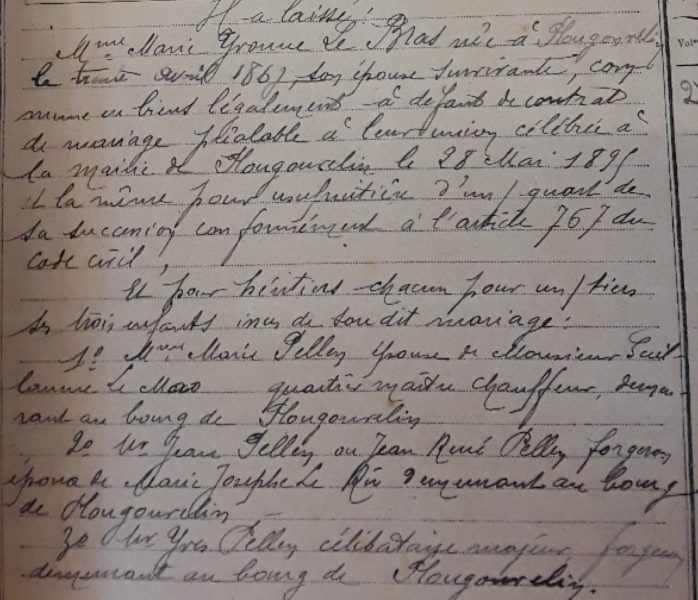 Il a laissé :
Mme Marie Yvonne Le Bras née à Plougonvelin
le trente avril 1867, son épouse survivante, com
mune en biens légalement à défaut de contrat
de mariage préalable à leur union célébrée à
la mairie de Plougonvelin le 28 Mai 1895
et la même pour usufruitière d'un / quart de
sa succession conformément à l'article 767 du
code civil,
Et pour héritiers chacun pour un / tiers
ses trois enfants issus de son dit mariage :
1o Mme Marie Pellen épouse de Monsieur Guil
laume Le quartier maître chauffeur, demeu
rant au bourg de Plougonvelin
2o Mr Jean Pellen ou Jean René Pellen forgeron
époux de Marie Josèphe Le demeurant au bourg
de Plougonvelin
3o Mr Yves Pellen célibataire majeur forgeron
demeurant au bourg de Plougonvelin.
2